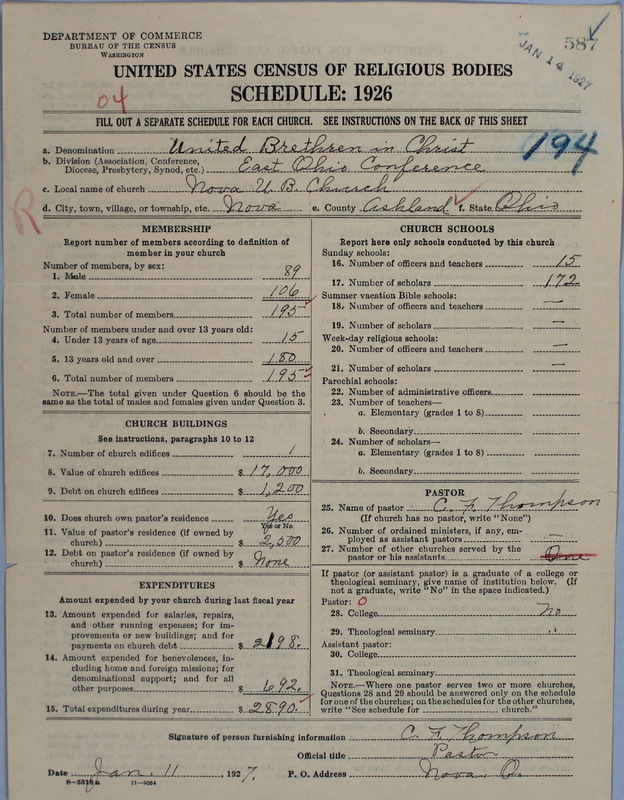 DEPARTMENT OF COMMERCE
BUREAU OF THE CENSUS
WASHINGTON
587
JAN 14 1927
UNITED STATES CENSUS OF RELIGIOUS BODIES
SCHEDULE: 1926
04
FILL OUT A SEPARATE SCHEDULE FOR EACH CHURCH. SEE INSTRUCTIONS ON THE BACK OF THIS SHEET
194
a. Denomination United Brethren in Christ
b. Division (Association, Conference, Diocese, Presbytery, Synod, etc.) East Ohio Conference
c. Local name of church Nova U.B. Church
d. City, town, village, or township, etc. Nova e. County Ashland f. State Ohio
R
MEMBERSHIP
Report number of members according to definition of
member in your church
Number of members, by sex:
1. Male 89
2. Female 106
3. Total number of members 195
Number of members under and over 13 years old:
4. Under 13 years of age 15
5. 13 years old and over 180
6. Total number of members 195
NOTE.—The total given under Question 6 should be
same as the total of males and females given under Question 3.
CHURCH BUILDINGS
See instructions, paragraphs 10 to 12
7. Number of church edifices 1
8. Value of church edifices $ 17,000
9. Debt on church edifices $ 1,200
10. Does church own pastor's residence Yes
Yes or No
11. Value of pastor's residence (if owned by
church) $ 2,500
12. Debt on pastor's residence (if owned by
church) $ None
EXPENDITURES
Amount expended by your church during last fiscal year
13. Amount expended for salaries, repairs,
and other running expenses; for im-
provements or new buildings; and for
payments on church debt $ 2198.
14. Amount expended for benevolences, in-
cluding home and foreign missions; for
denominational support; and for all
other purposes $ 692.
15. Total expenditures during year $ 2890.
CHURCH SCHOOLS
Report here only schools conducted by this church
Sunday schools:
16. Number of officers and teachers 15
17. Number of scholars 172
Summer vacation Bible schools:
18. Number of officers and teachers —
19. Number of scholars —
Week-day religious schools:
20. Number of officers and teachers —
21. Number of scholars —
Parochial schools:
22. Number of administrative officers
23. Number of teachers—
a. Elementary (grades 1 to 8)
b. Secondary
24. Number of scholars—
a. Elementary (grades 1 to 8)
b. Secondary
PASTOR
25. Name of pastor C. F. Thompson
(If church has no pastor, write "None")
26. Number of ordained ministers, if any, em-
ployed as assistant pastors —
27. Number of other churches served by the
pastor or his assistants One
If pastor (or assistant pastor) is a graduate of a college or
theological seminary, give name of institution below. (If
not a graduate, write "No" in the space indicated.)
Pastor: 0
28. College No
29. Theological seminary "
Assistant pastor:
30. College
31. Theological seminary
NOTE.—Where one pastor serves two or more churches,
Questions 28 and 29 should be answered only on the schedule
for one of the churches; on the schedules for the other churches,
write "See schedule for church."
Signature of person furnishing information C. F. Thompson
Official title Pastor
Date Jan. 11, 1927. P. O. Address Nova, O.
8—5518a 11—9064